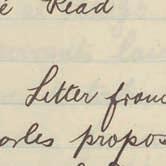 e Read
Letter from
arles propos